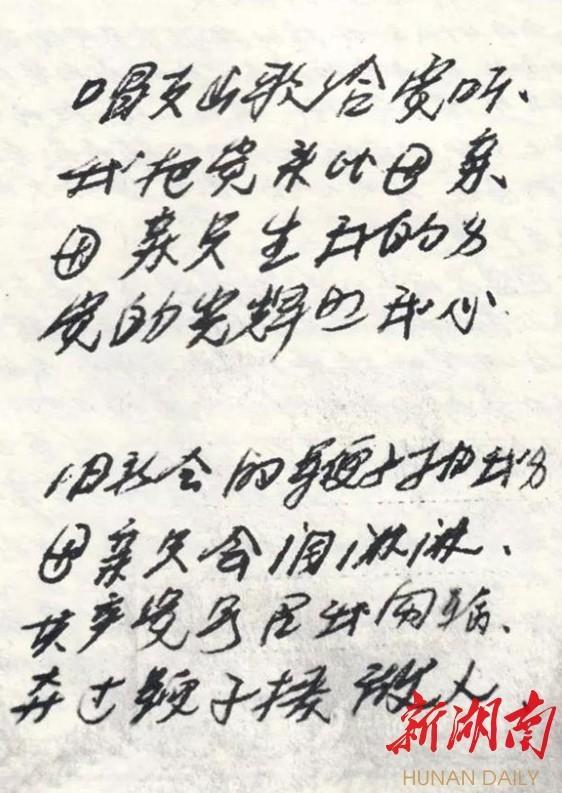 唱支山歌给党听、
我把党来比母亲、
母亲只生我的身
党的光辉照我心.
旧社会的鞭子抽我身
母亲只会泪淋淋、
共产党号召我闹革命、
夺过鞭子揍敌人、
新湖南
HUNAN DAILY